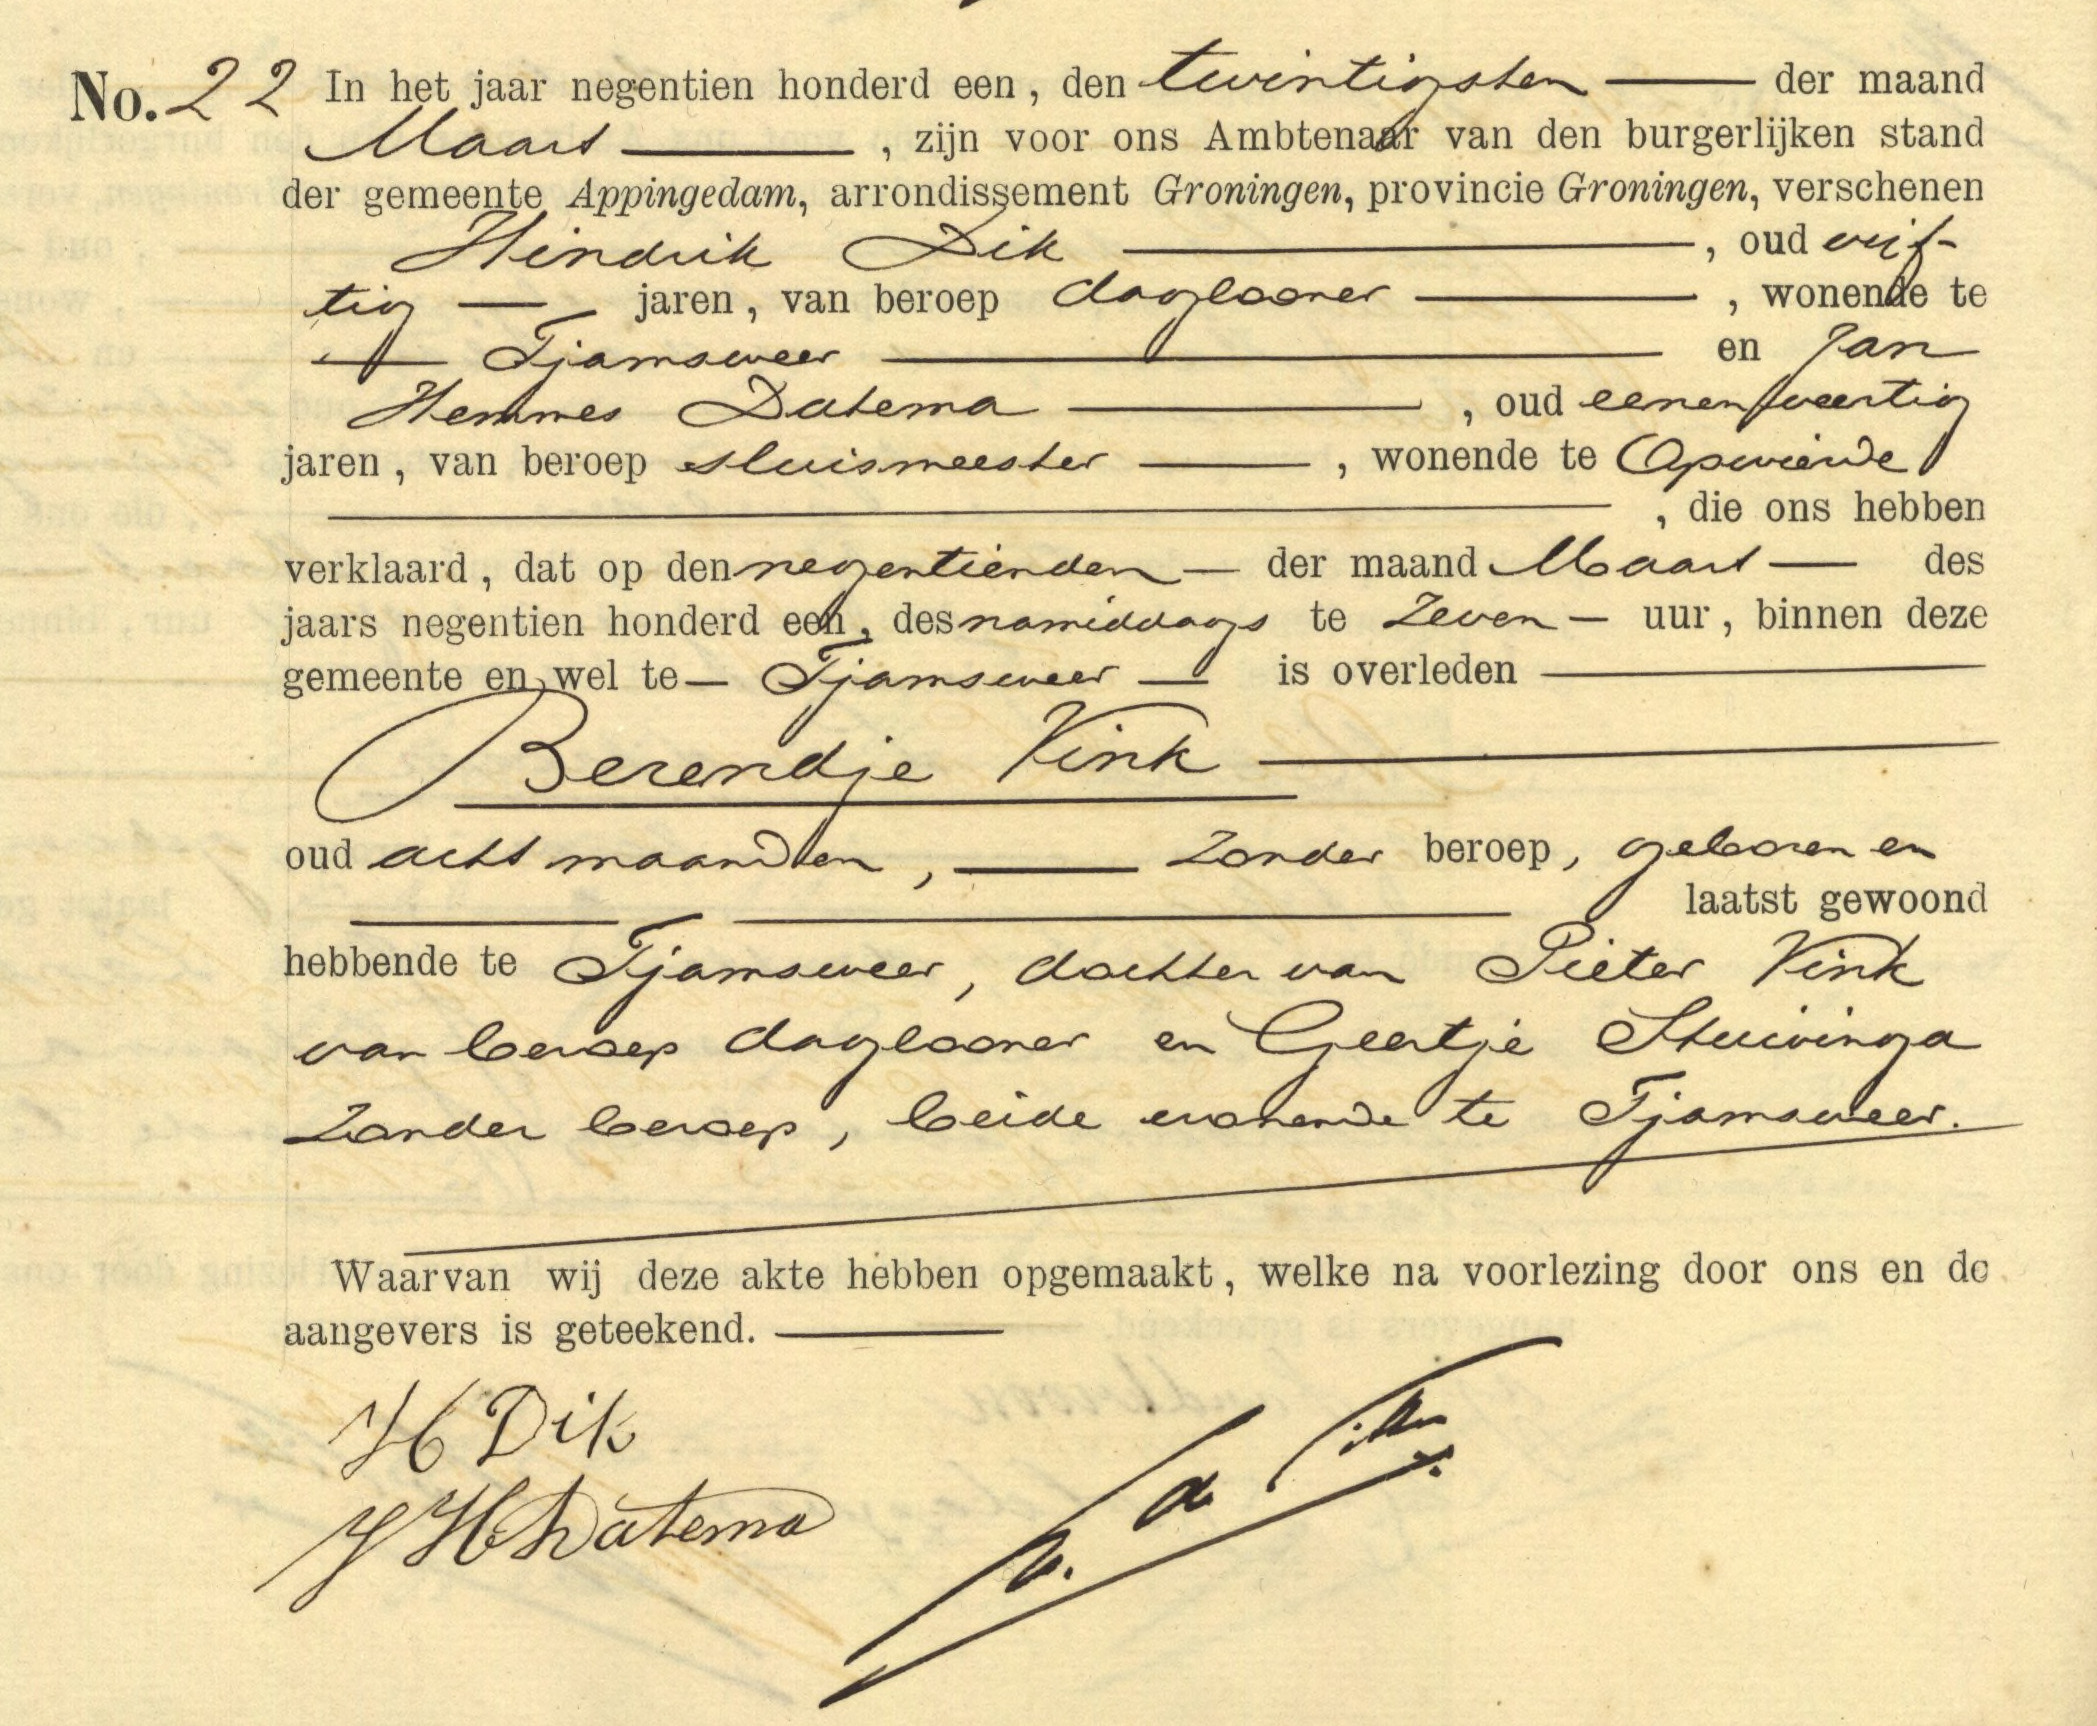 No. 22 In het jaar negentien honderd een, den twintigsten der maand
Maart, zijn voor ons Ambtenaar van den burgerlijken stand
der gemeente Appingedam, arrondissement Groningen, provincie Groningen, verschenen
Hindrik Dik, oud vijf-
tig jaren, van beroep daglooner, wonende te
Tjamsweer en Jan
Hemmes Datema, oud eenenveertig
jaren, van beroep sluismeester, wonende te Opwierde
, die ons hebben
verklaard, dat op den negentienden der maand Maart des
jaars negentien honderd een, des namiddags te zeven uur, binnen deze
gemeente en wel te Tjamsweer is overleden
Berendje Vink
oud acht maanden, zonder beroep, geboren en
laatst gewoond
hebbende te Tjamsweer, dochter van Pieter Vink
van beroep daglooner en Geertje Stuivinga
zonder beroep, beide wonende te Tjamsweer.
Waarvan wij deze akte hebben opgemaakt, welke na voorlezing door ons en de
aangevers is geteekend.
H Dik
J H Datema